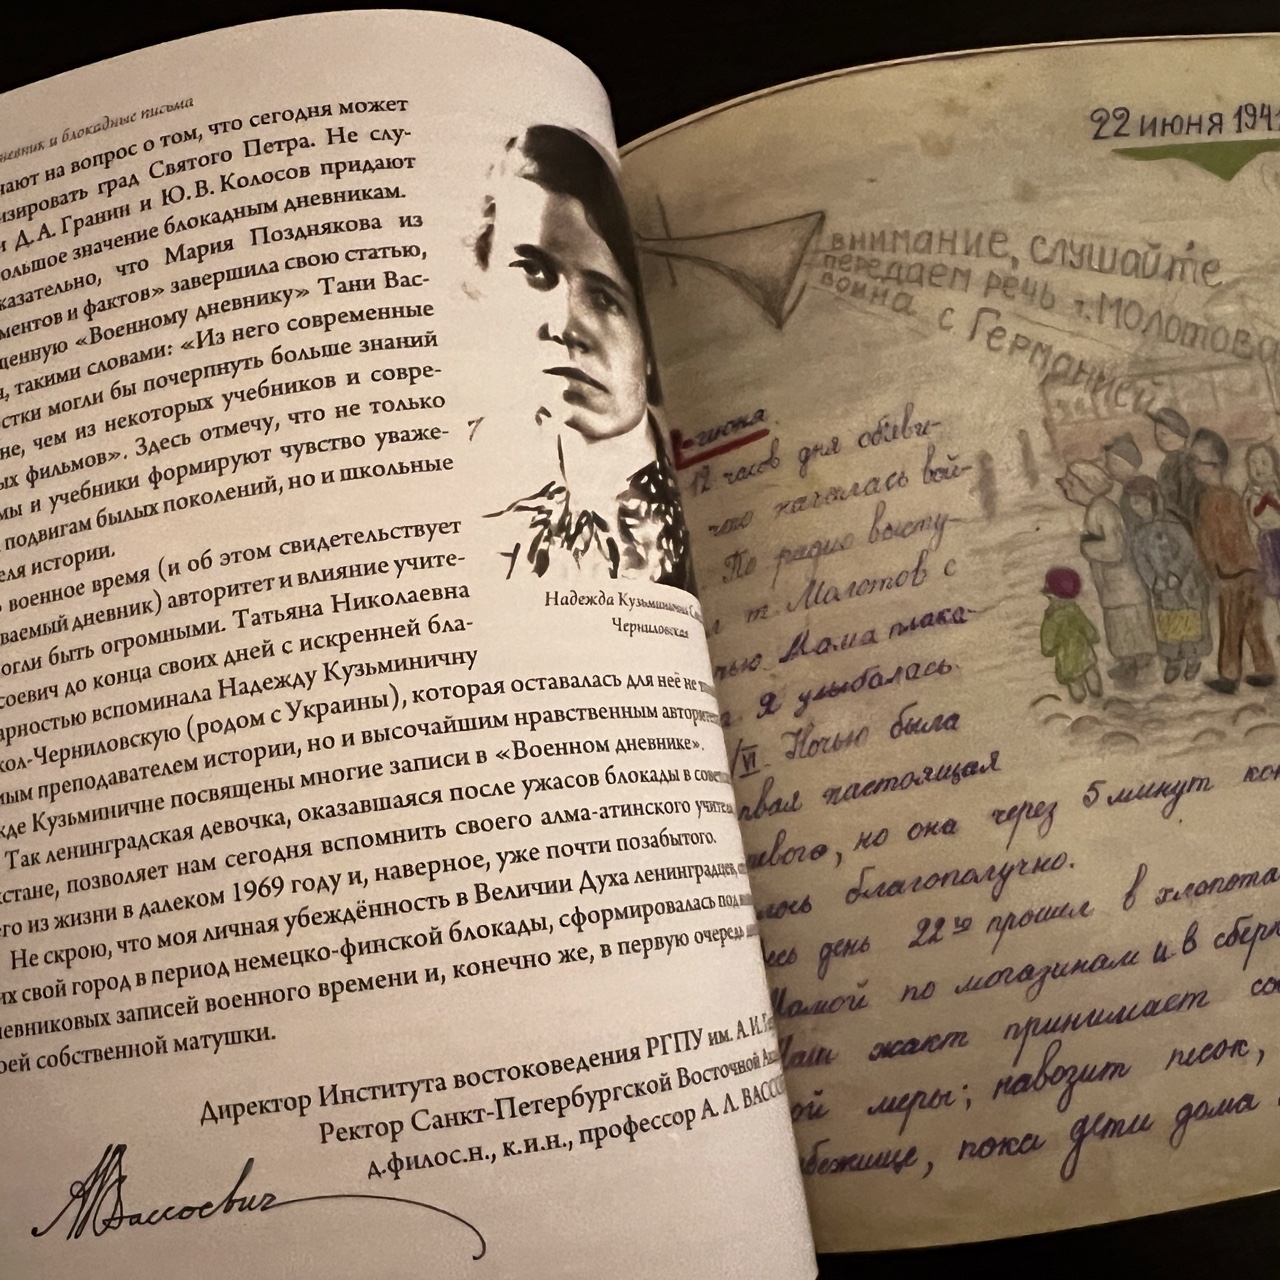 невник и блокадные письма
чают на вопрос о том, что сегодня может
изировать град Святого Петра. Не слу-
и Д.А. Гранин и Ю.В. Колосов придают
ольшое значение блокадным дневникам.
казательно, что Мария Позднякова из
ментов и фактов» завершила свою статью,
щенную «Военному дневнику» Тани Вас-
ч, такими словами: «Из него современные
стки могли бы почерпнуть больше знаний
не, чем из некоторых учебников и совре-
ых фильмов». Здесь отмечу, что не только
мы и учебники формируют чувство уваже-
подвигам былых поколений, но и школьные
еля истории.
военное время (и об этом свидетельствует
ваемый дневник) авторитет и влияние учите-
огли быть огромными. Татьяна Николаевна
соевич до конца своих дней с искренней бла-
арностью вспоминала Надежду Кузьминичну
кол-Черниловскую (родом с Украины), которая оставалась для неё не
мым преподавателем истории, но и высочайшим нравственным авторитето
жде Кузьминичне посвящены многие записи в «Военном дневнике».
Так ленинградская девочка, оказавшаяся после ужасов блокады в совет
хстане, позволяет нам сегодня вспомнить своего алма-атинского учител
его из жизни в далеком 1969 году и, наверное, уже почти позабытого.
Не скрою, что моя личная убеждённость в Величии Духа ленинградцев,
их свой город в период немецко-финской блокады, сформировалась под
невниковых записей военного времени и, конечно же, в первую очередь
оей собственной матушки.
Надежда Кузьминична
Черниловская
Директор Института востоковедения РГПУ им. А.И.
Ректор Санкт-Петербургской Восточной
д.филос.н., к.и.н., профессор А. Л. ВАССО
АВассоевич
22 июня 1941
внимание, слушайте
передаем речь т. Молотова
война с Германией
июня.
12 часов дня объяви-
что началась вой-
По радио высту-
т. Молотов с
чью. Мама плака-
Я улыбалась.
/VI. Ночью была
рвая настоящая
тревога, но она через 5 минут кон
лось благополучно.
есь день 22го прошел в хлопота
Мамой по могазинам и в сберк
Наш жакт принимает со
ой меры; навозит песок,
бежище, пока дети дома